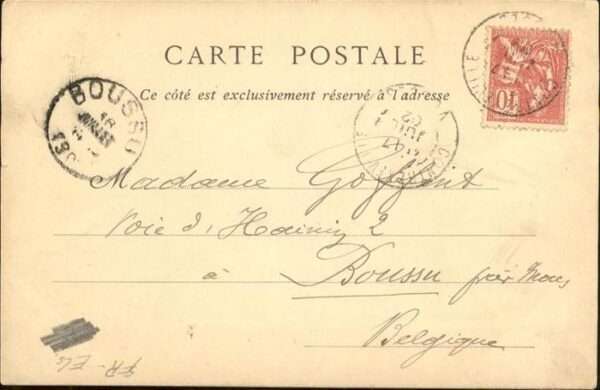 CARTE POSTALE
Ce côté est exclusivement réservé à l'adresse
BOUSSU
16
JUILLET
10
Madame Goffint
Voie d'Hainin 2
à Boussu près Mons
Belgique
FR - ELG